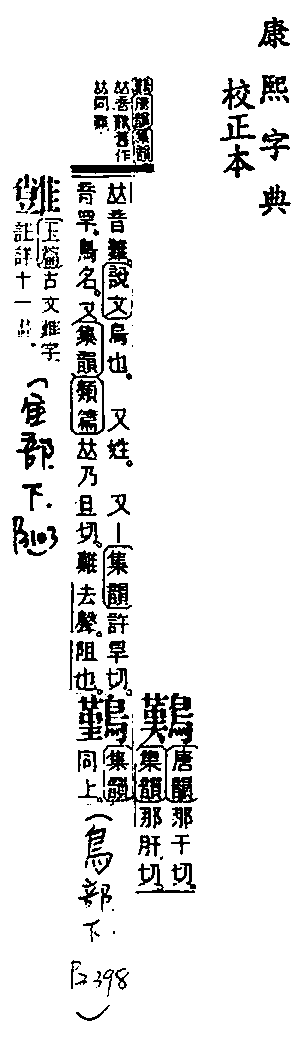 康熙字典
校正本
鷬唐韻那干切。
集韻那肝切。
𠀤音難。說文鳥也。又姓。又丨集韻許旱切。
音罕。鳥名。又集韻類篇𠀤乃旦切。難去聲。阻也。
鸛集韻同上。
(鳥部.下.P2398)
玉篇古文難字
註詳十一畫。
(隹部.下.P3103